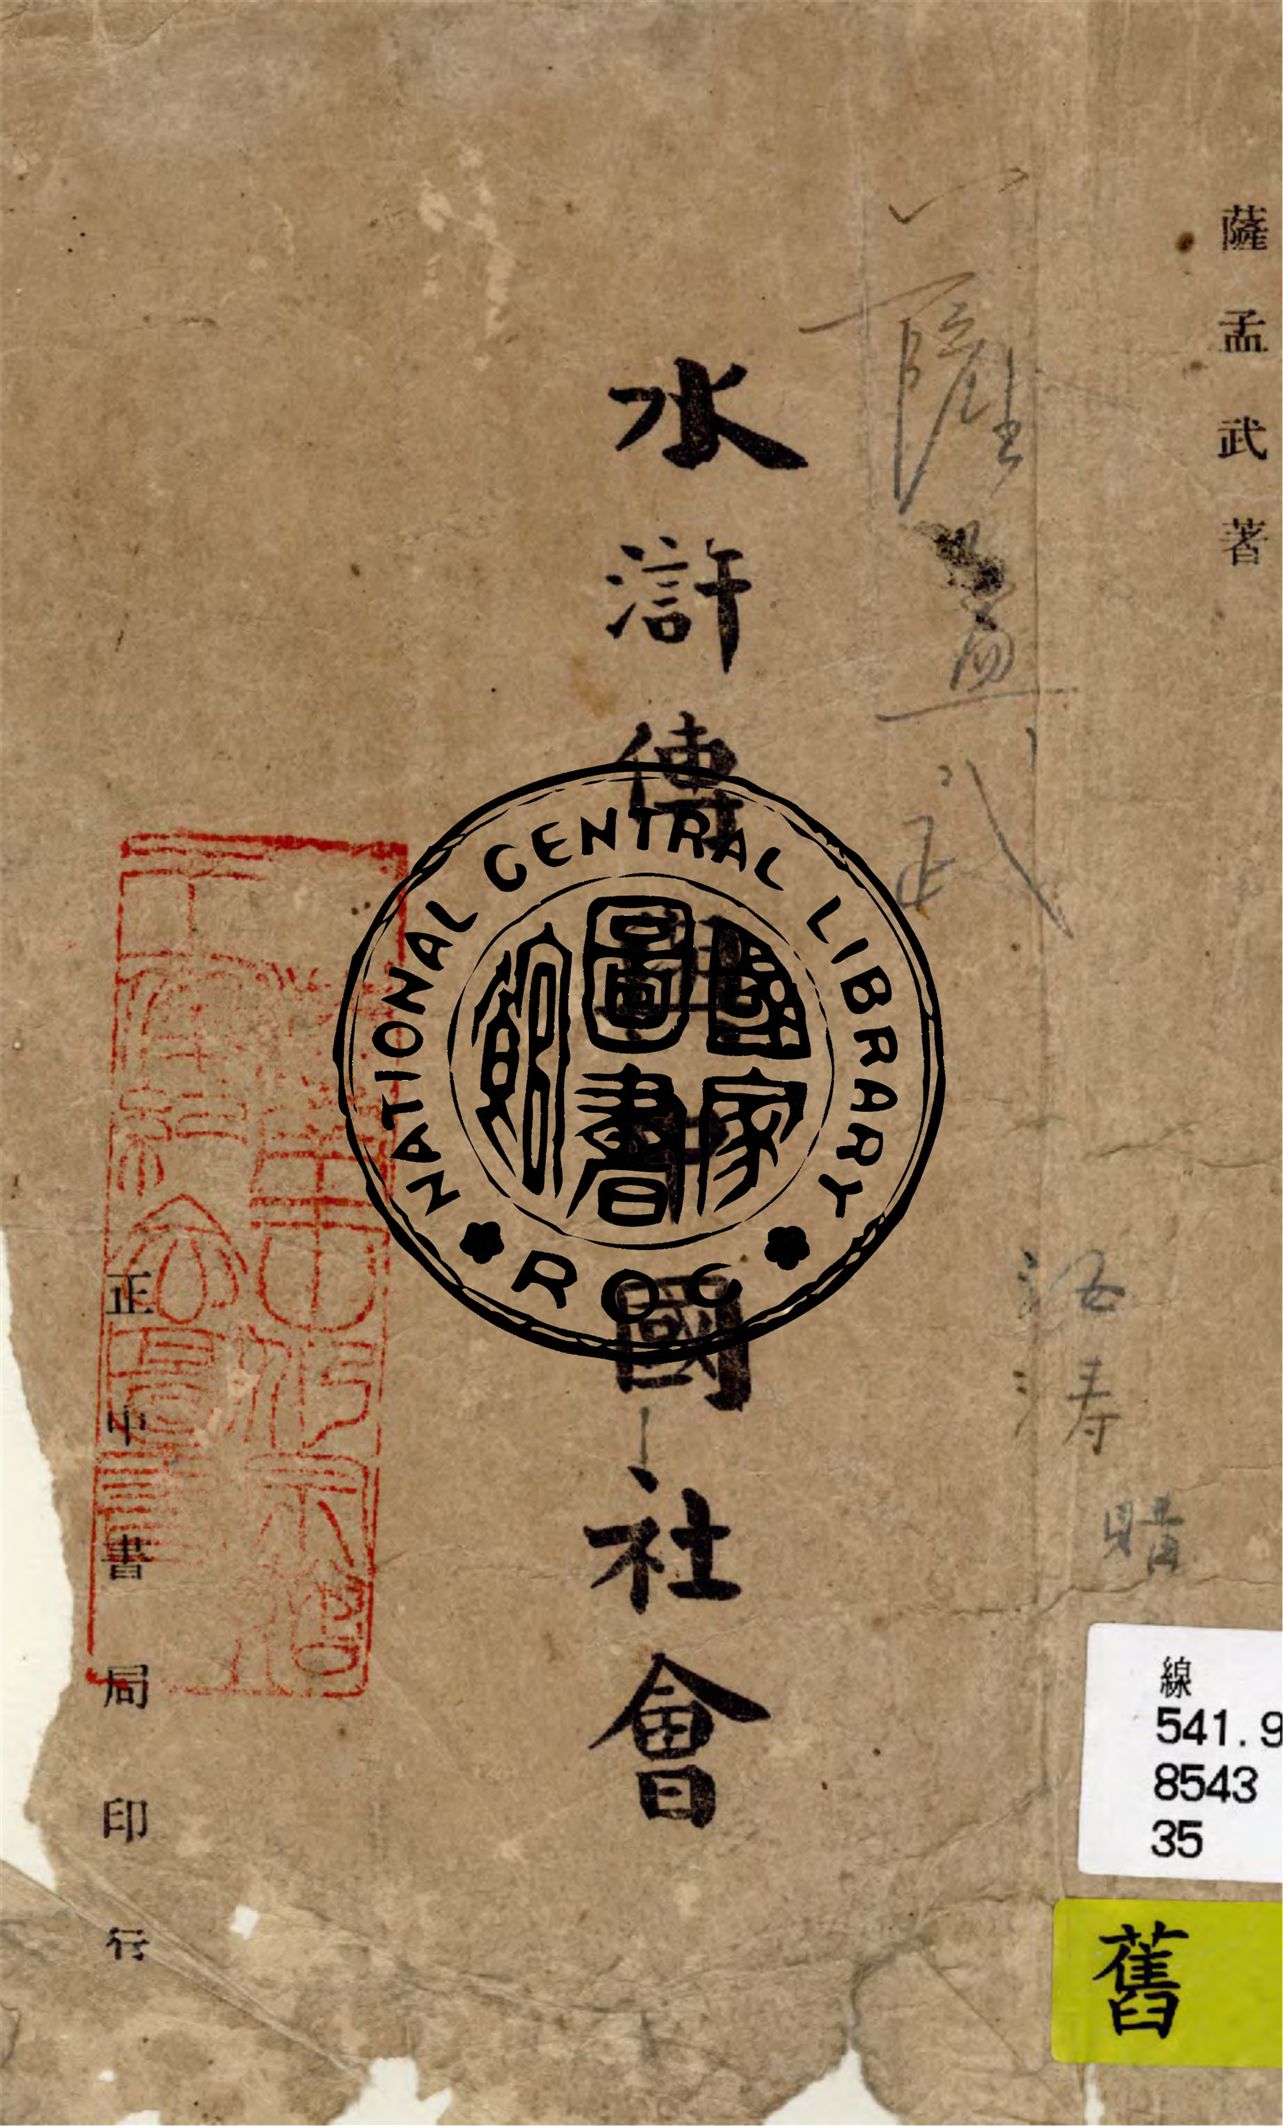 薩孟武著
水滸傳與中國社會
薩孟武
洛涛
購
正中書局印行
NATIONAL CENTRAL LIBRARY
ROC
國家
圖書
館
線
541.9
8543
35
舊